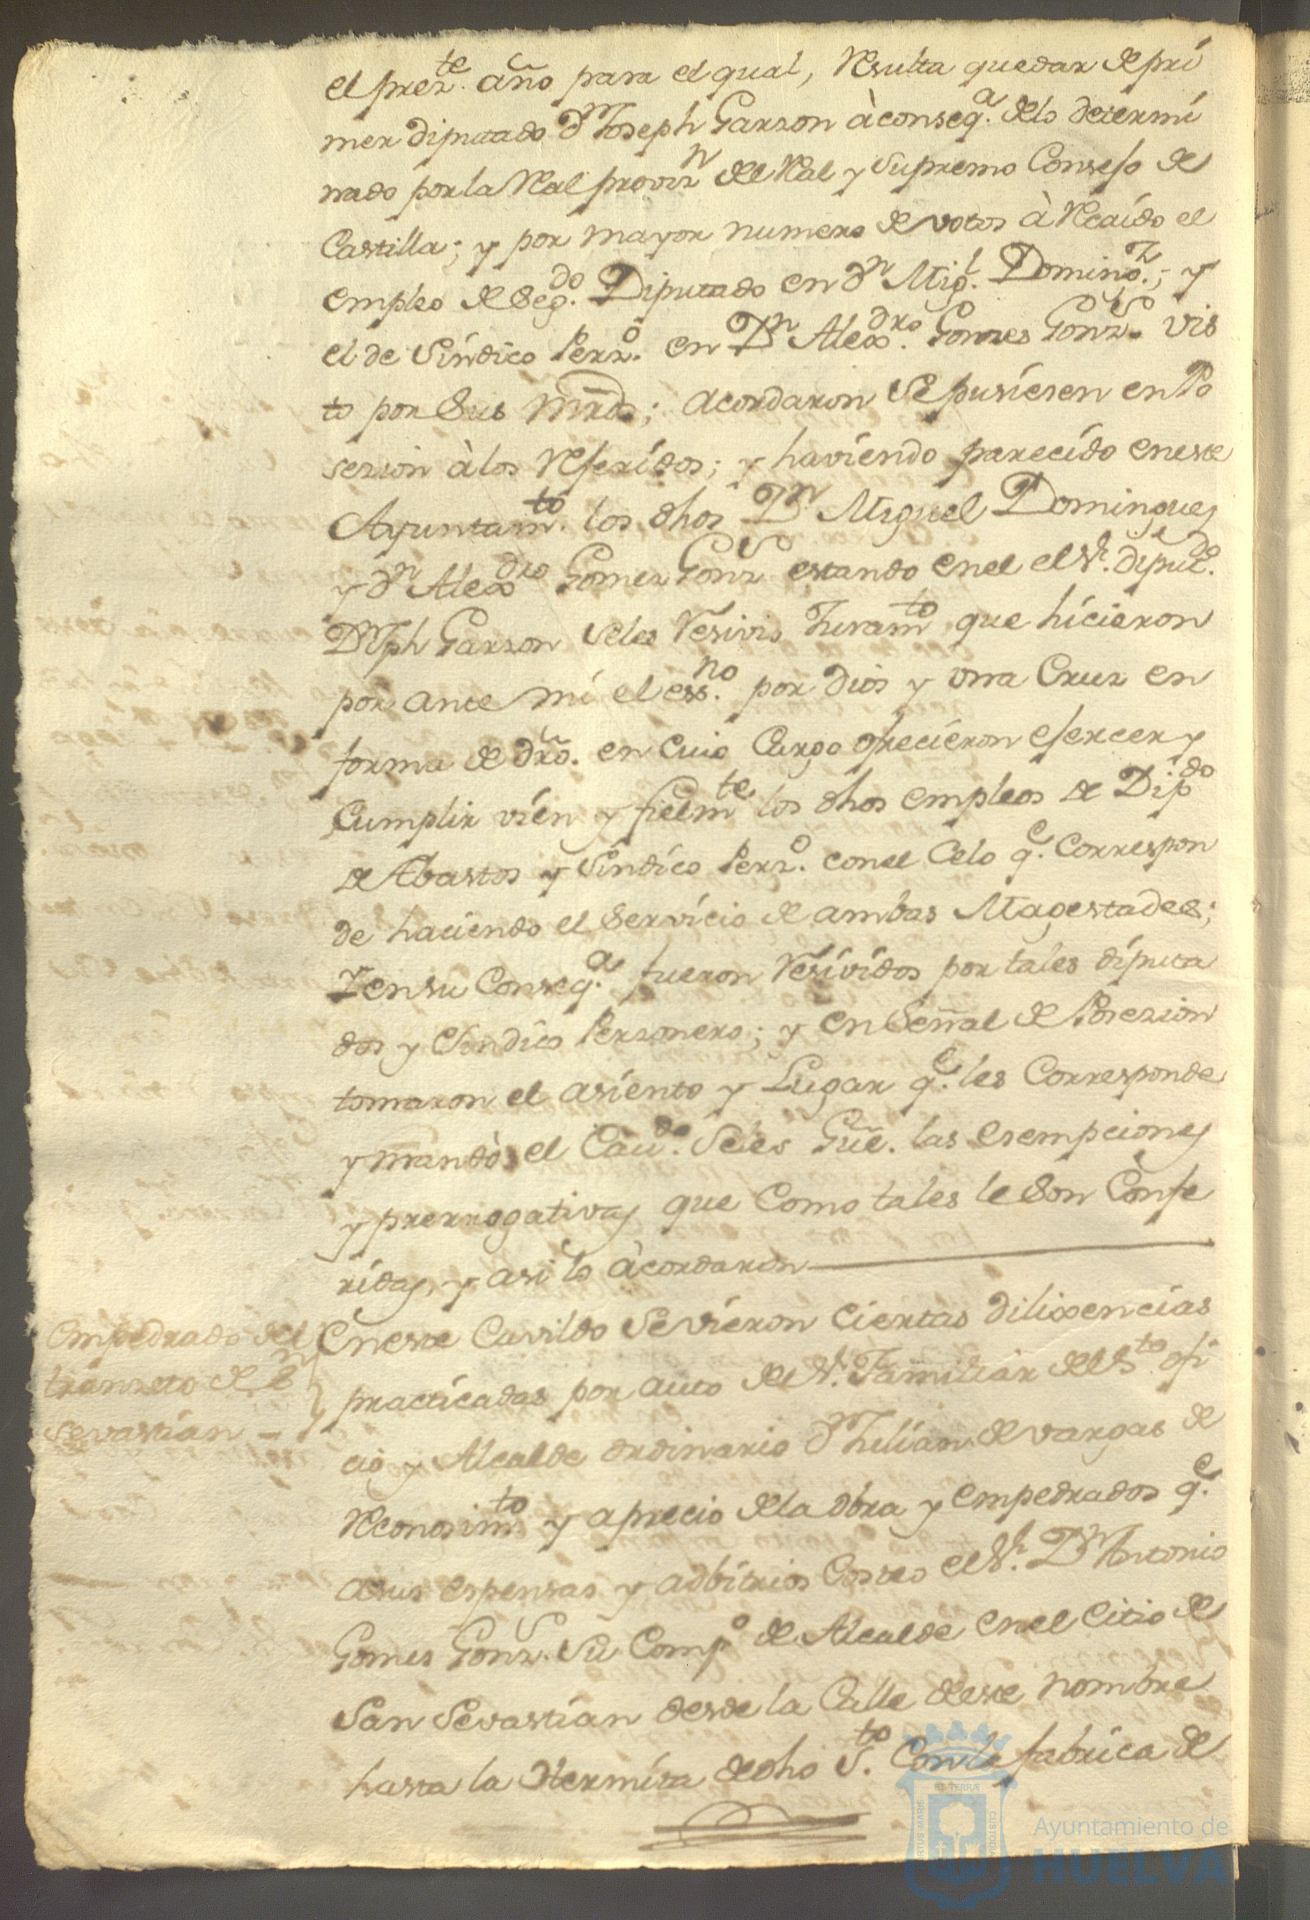 el prez.te año para el qual, Resulta quedar de pri
mer diputado Dn Joseph Garzon à conseq.a delo determi
nado por la Real provizn del Real y Supremo Consejo de
Castilla; y por mayor numero de votos à Recaído el
empleo de Seg.do Diputado en dn Mig.l Doming.z; y
el de Síndico Perz.o en Dn Alexdro. Gomes Gonz.s vis
to por Sus Mrds; acordaron Se pusiesen en Po
sezion à los Referidos; y haviendo parecido en este
Ayuntam.to los dhos Dn Miguel Domingues
y dn Alexdro Gomez Gonz.s estando en el el Sr. diput.do
Dn Jph Garzon Seles Resivio Juram.to que hicieron
por ante mi el ess.no por Dios y una Cruz en
forma de dro. en cuio Cargo ofrecieron eserzer y
Cumplir vien y fielm.te los dhos empleos de Dip.do
de Abastos y Síndico Perz.o con el Celo q.e Correspon
de haciendo el Servicio de ambas Magestades;
Y en su Conseq.a fueron Resividos por tales diputa
dos y Síndico Perzonero; y en Señal de Posezion
tomaron el asiento y Lugar q.e les Corresponde
y mandò el Cav.do Seles Gũe. las esempciones
y prerrogativas que Como tales le Son Confe
ridas, y asi lo àcordaron
Empedrado del
transeto de Sn
Sevastian –
En este Cavildo Se vieron Ciertas dilixencias
practicadas por auto del Sr. Familiar del S.to ofi
cio y Alcalde ordinario Dn Julian de Vargas de
Reconosim.to y aprecio dela obra y empedrados q.e
a sus espensas y adbitrios Costeo el Sr. Dn Antonio
Gomes Gonz.s Su Comp.o de Alcalde en el Citio de
San Sevastian desde la Calle de este nombre
hasta la Hermita de dho S.to Con la fabrica de
ayuntamiento de
HUELVA